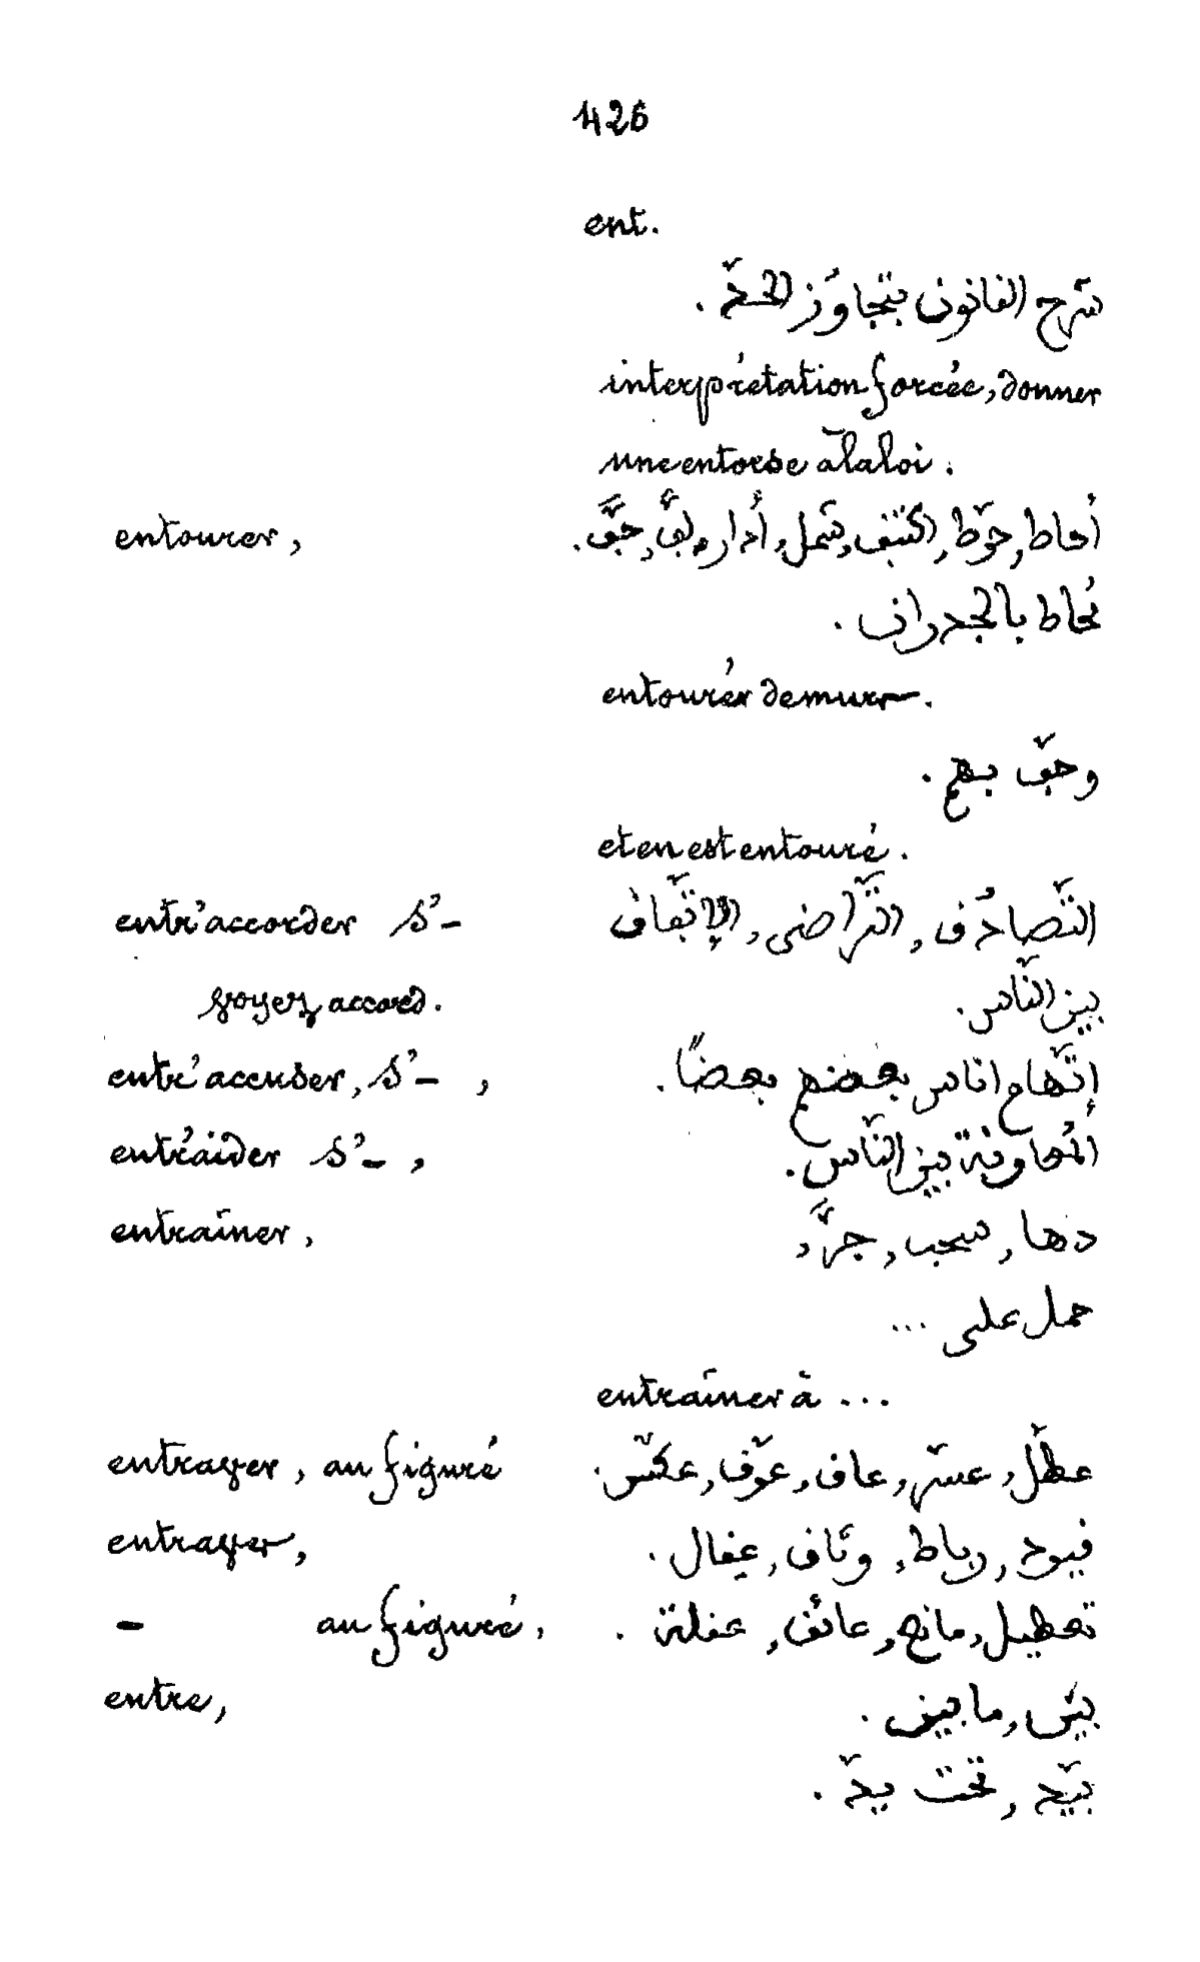 426
ent.
شرح القانون بتجاوُز الحدّ.
interprétation forcée, donner
une entorse à la loi.
entourer, أحاط, حوّط, اكتنف, شمل, أدار, لفَّ, حفَّ.
مُحاط بالجدران.
entourér de murs.
وحفّ بهم.
et en est entouré.
entr'accorder s'- التّصادُف, التّراضى, الإتّفاف
voyez accord. بين النّاس.
entr'accuser, s'-, إتّهام اناس بعضهم بعضًا.
entr'aider s'-, المُعاونة بين النّاس.
entraîner, دها, سحب, جرَّ,
حمل على ...
entraîner à ...
entraver, au figuré عطّل, عسّر, عاف, عوّف, عكّس.
entraver, فيود, رباط, وثاف, عفال.
- au figuré, تعطيل, مانع, عائف, عفلة.
entre, بين, ما بين.
تحت يدّ.